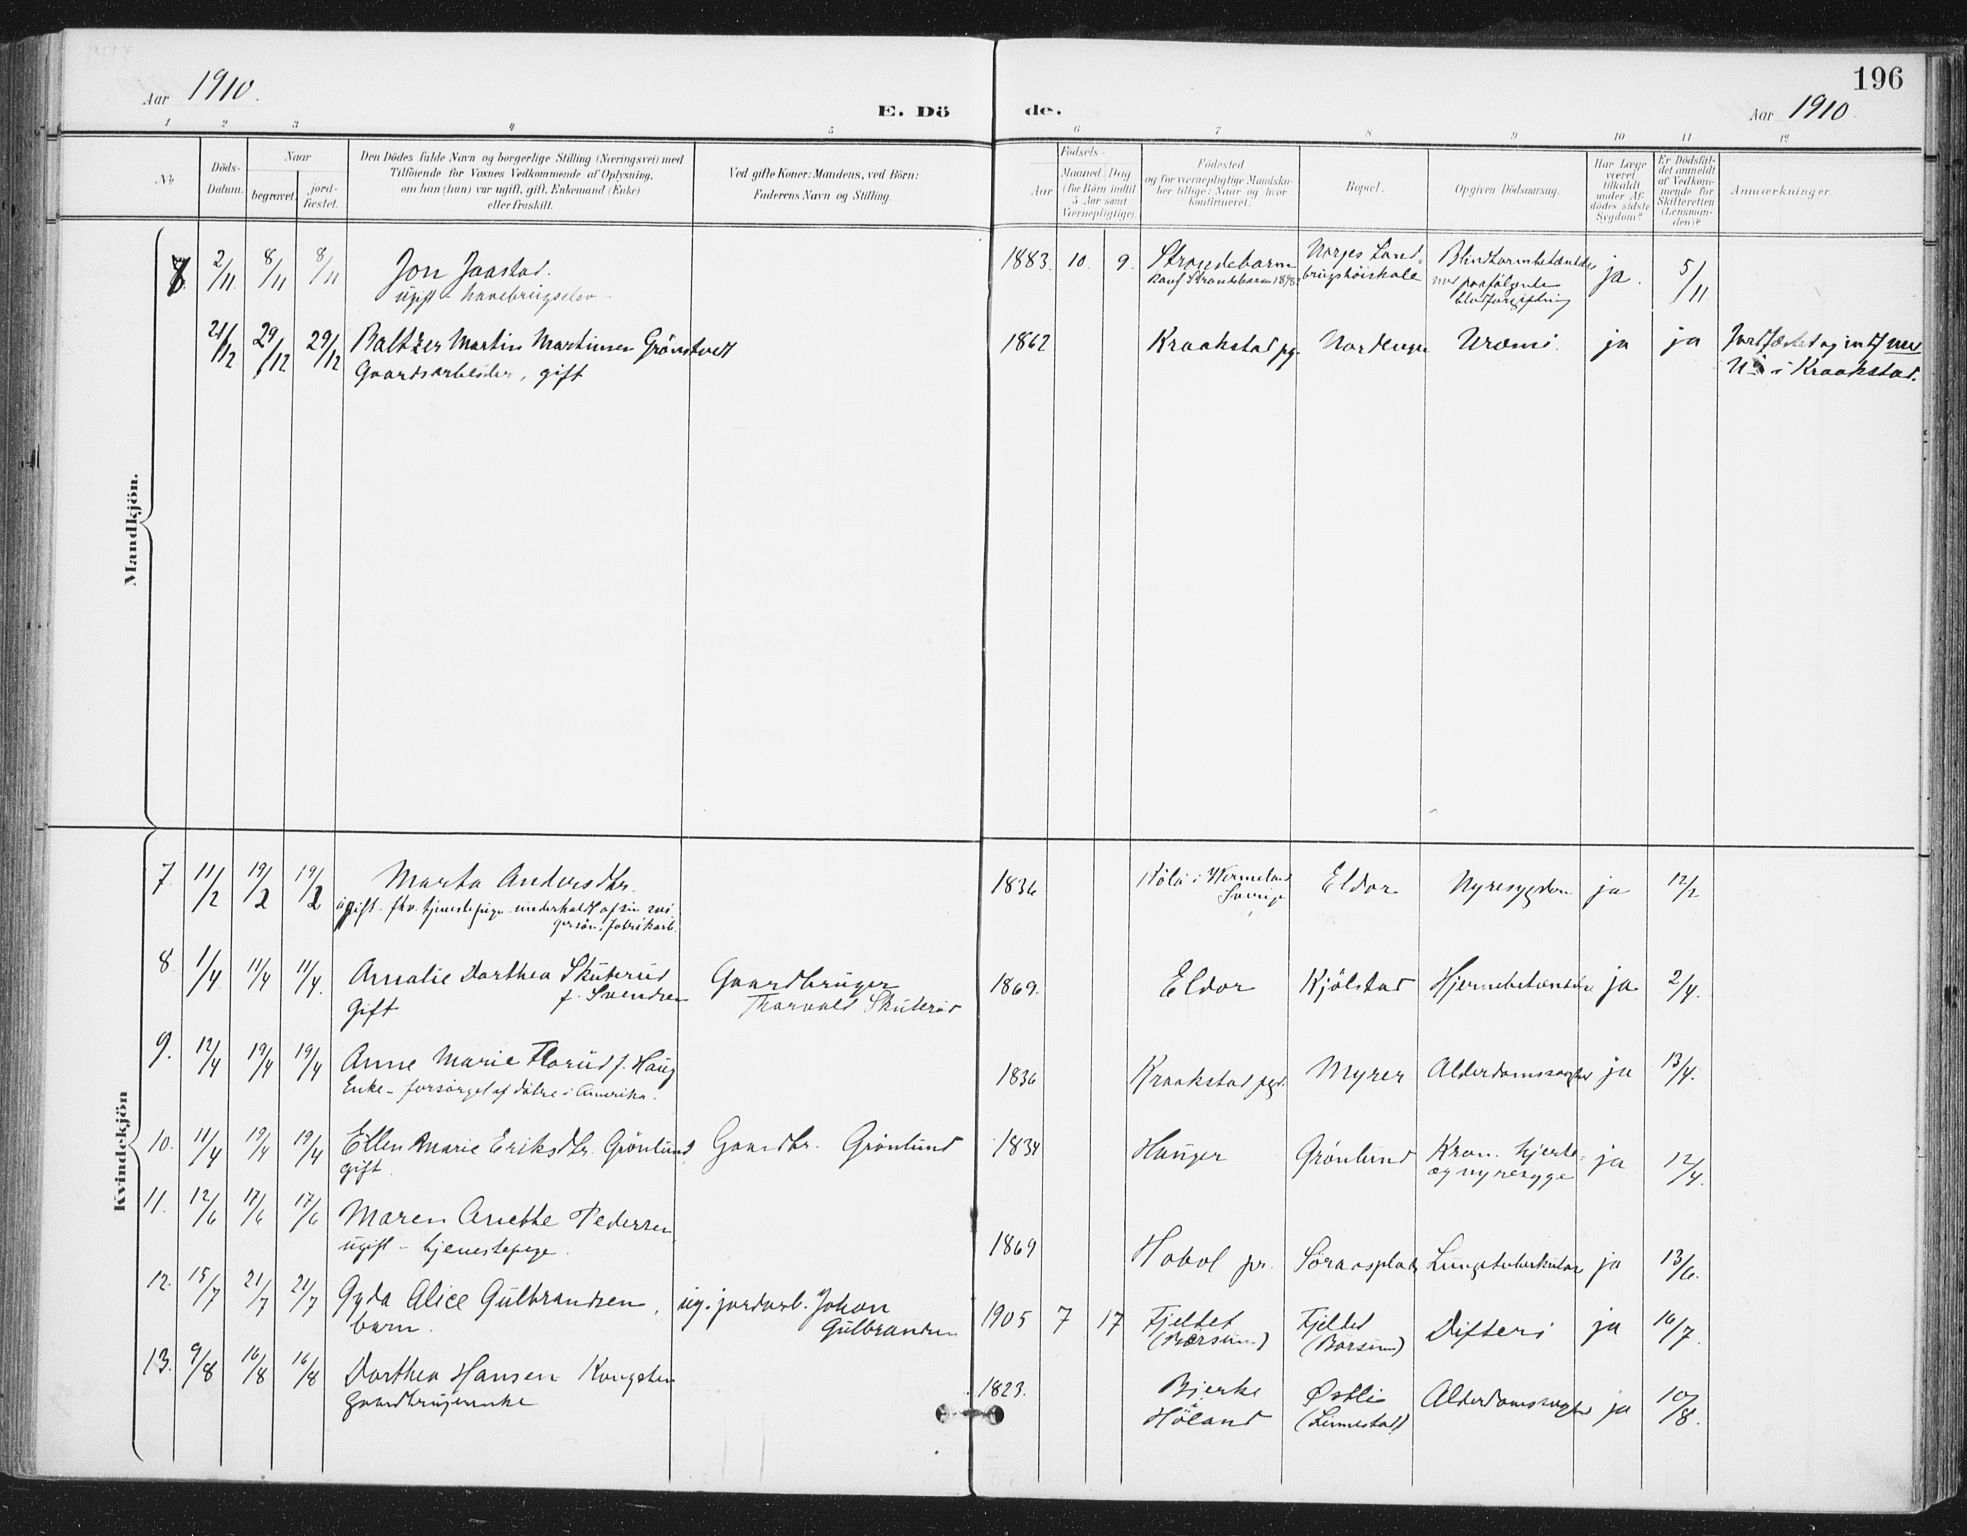 196
Aar 1910.
E. Dö de.
Aar 1910
1 2 3 4 5 6 7 8 9 10 11 12
No
Döds-Datum.
Naar
begravet.
jord-fæstet.
Den Dödes fulde Navn og borgerlige Stilling (Næringsvei) med
Tilföiende for Voxnes Vedkommende af Oplysning,
om han (hun) var ugift, gift, Enkemand (Enke)
eller fraskilt.
Ved gifte Koner: Mandens, ved Börn:
Faderens Navn og Stilling.
Födsels-
Aar
Maaned Dag
(for Börn indtil
5 Aar samt
Værnepligtige).
Födested
og for værnepligtige Mandska-
ber tillige: Naar og hvor
konfirmeret.
Bopæl.
Opgiven Dödsaarsag.
Har Læge
været
tilkaldt
under Af-
dödes sidste
Sygdom?
Er Dödsfal-
det anmeldt
af Vedkom-
mende for
Skifteretten
(Lensman-
den)?
Anmærkninger.
Mandkjön.
2/11 8/11 8/11 Jon Jaastad. 1883. 10. 9. Strandebarm Norges Land- ja. 5/11
ugift - havebrugselev - konf. Strandebarm brugshöiskole
med paafölgende
blodforgiftning
21/12 29/12 29/12 Baltzer Martin Martinsen Grönstvedt 1862 Kraakstad pg. Uræmi. ja ja
Gaardsarbeider, gift i Kraakstad.
Kvindekjön
7. 11/2 19/2 19/2 Marta Andersdtr. 1836 i Wermeland Eldor Nyresygdom ja 12/2
ugift. fhv. tjenestepige - underholdt af sin Sverige
fabrikarb.
8. 1/4 11/4 11/4. Amalie Dorthea Skuterud Gaardbruger 1869. Eldor Kjölstad Hjernebetændelse ja 2/4.
gift f. Svendsen Thorvald Skuterud
9. 12/4 19/4 19/4 Anne Marie Florud f. Haug 1836 Kraakstad pgd. Myrer Alderdomssvaghed ja 13/4.
Enke - forsörget af dötre i Amerika.
10. 11/4 19/4 19/4 Ellen Marie Eriksdtr. Grönlund Gaardbr. Grönlund 1834 Hauger Grönlund Kron. hjerte- ja 12/4.
gift. og nyresyge
11. 12/6 17/6 17/6 Maren Anette Pedersen 1869 Hobol pr. Soraasplads Lungetuberkulose ja 13/6.
ugift - tjenestepige.
12. 15/7 21/7 21/7 Gyda Alice Gulbrandsen, ug. jordarb. Johan 1905 7 17 Fjeldet Fjeldet Difteri ja 16/7.
barn. Gulbrandsen (Börsum) (Börsum)
13. 9/8 16/8 16/8 Dorthea Hansen Kongsten 1823. Bjerke Østli Alderdomssvaghed ja 10/8.
gaardbrugerenke i Höland